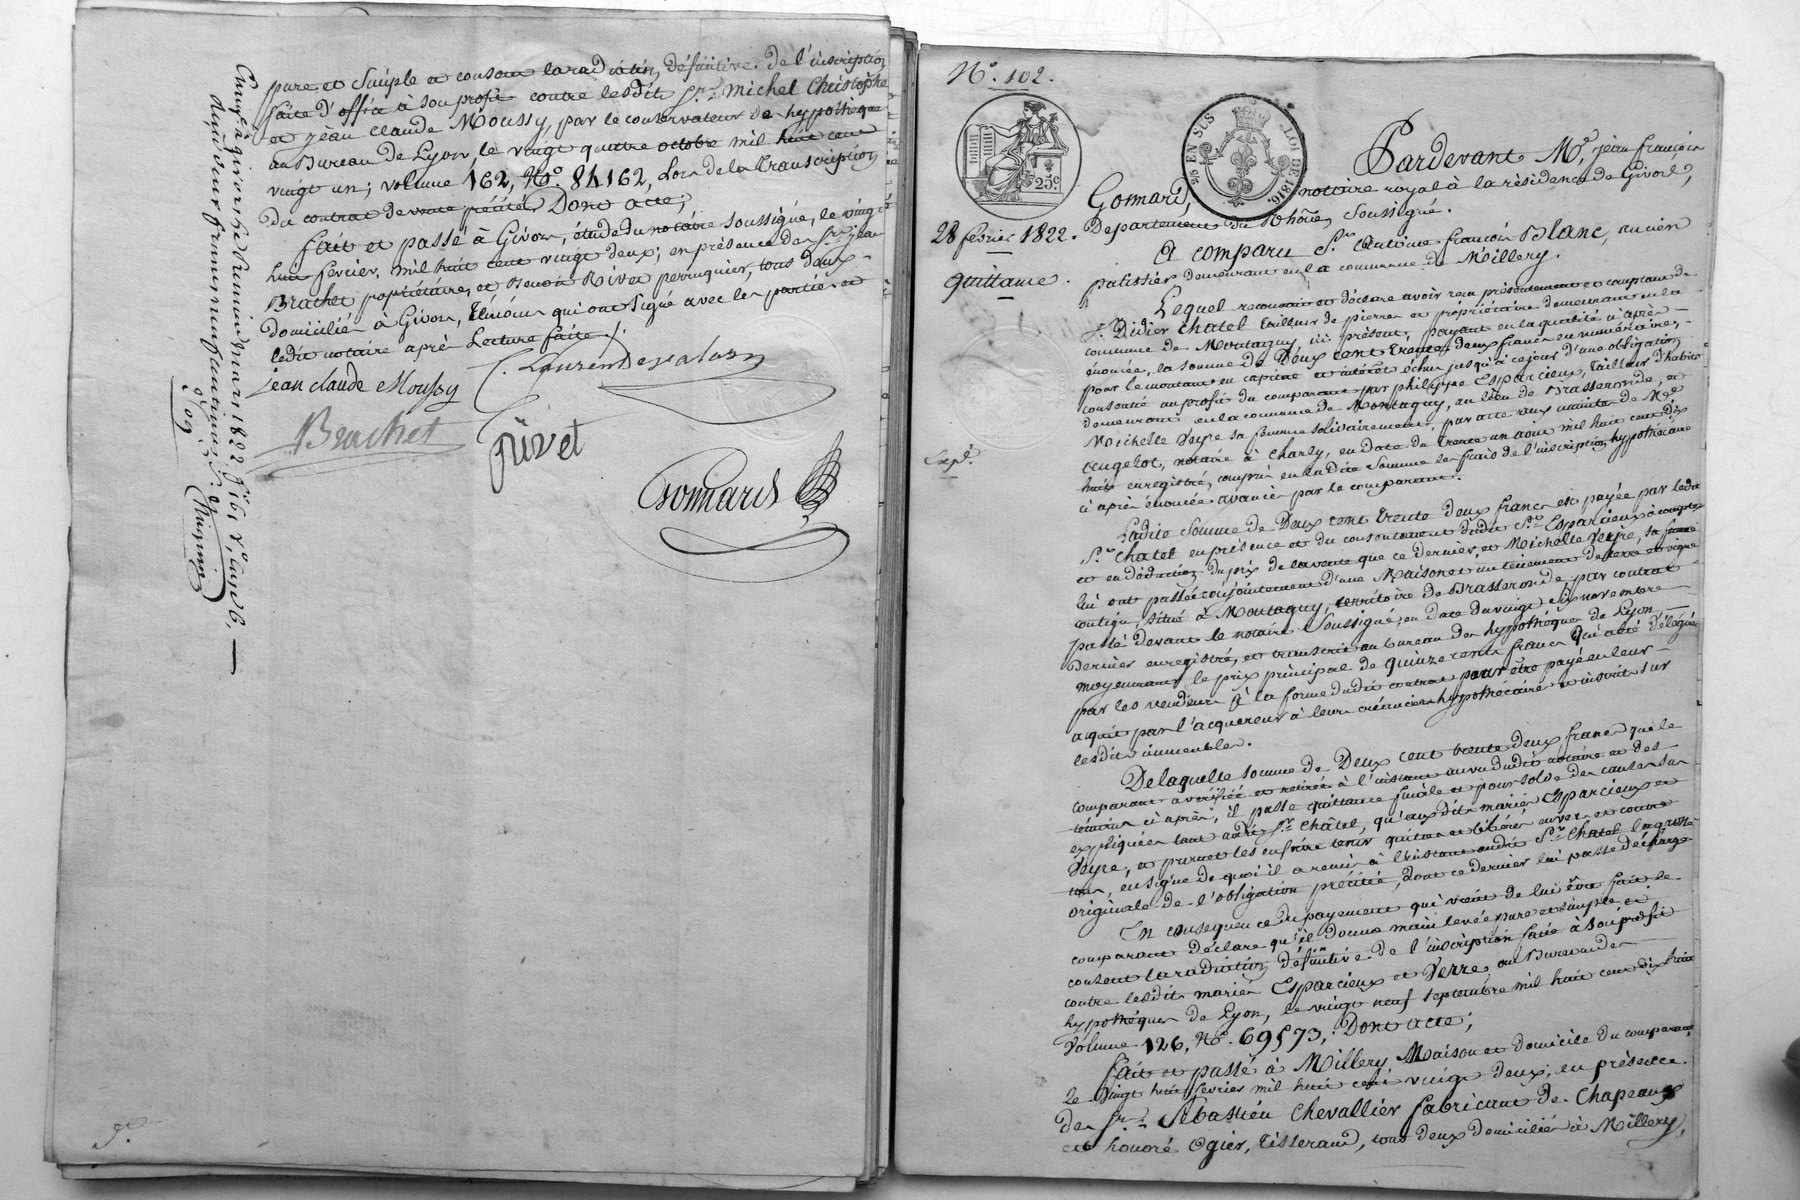 pure et simple et consent la radiation définitive de l'inscription
faite d'office à son profit contre lesdits Srs. Michel Christophe
et jean claude Moussy, par le conservateur des hypothèques
au Bureau de Lyon, le vingt quatre octobre mil huit cent
vingt un; volume 162, No. 84162, Lors de la Transcription
du contrat de vente précité, Dont acte;
fait et passé à Givors, étude du notaire soussigné, le vingt
huit février, mil huit cent vingt deux; en présence des Srs. jean
Brachet propriétaire, et Benoit Rivet perruquier, tous deux
domiciliés à Givors, témoins qui ont signé avec les parties et
ledit notaire après Lecture faite.
jean claude Moussy
Brachet
rivet
Gonnard
Enregé. à givors le mars 1822 fo. 161 Ro. Case 6.
No. 102.
25c.
25 EN SUS
LOI DE 1816
28 février 1822.
quittance.
Expé.
Pardevant Me. jean françois
Gonnard, notaire royal à la résidence de Givors,
Département du Rhône, soussigné.
A comparu Sr. Antoine françois Blanc, ancien
patissier demeurant en la commune de Millery.
Lequel reconnait et déclare avoir reçu présentement et comptant de
Sr. Didier Chatel tailleur de pierres et propriétaire demeurant en la
commune de Montagny, ici présent, payant en la qualité ci après
énoncée, la somme de Deux cent trente deux francs en numéraires,
pour le montant en capital et intérêts échus jusqu'à ce jour d'une obligation
consentie au profit du comparant par philippe Esparcieux, tailleur d'habits
demeurant en la commune de Montagny, au lieu de Brasseronde, et
Michelle Veyre sa femme solidairement, par acte aux minutes de Me.
Angelot, notaire à Charly, en date du trente un aout mil huit cent dix
huit enregistré, compris en ladite somme les frais de l'inscription hypothécaire
ci après énoncée avancés par le comparant.
Ladite somme de Deux cent trente deux francs est payée par ledit
Sr. Chatel en présence et du consentement dudit Sr. Esparcieux à compte
et en déduction du prix de la vente que ce dernier, et Michelle Veyre, sa femme
lui ont passée conjointement d'une Maison et un tenement de terre et vigne
contigu, situé à Montagny, territoire de Brasseronde, par contrat
passé devant le notaire soussigné, en date du vingt six novembre
dernier enregistré, et transcrit au bureau des hypothèques de Lyon,
moyennant le prix principal de quinze cents francs qui a été délégué
par les vendeurs à la forme dudit contrat pour être payé en leur
aquit par l'acquereur à leurs créanciers hypothécaires inscrits sur
lesdits immeubles.
De laquelle somme de Deux cent trente deux francs que le
comparant a vérifiée et retirée à l'instant au vu dudit notaire et des
témoins ci après, il passe quittance finale et pour solde des causes sus
expliquées tant audit Sr. Châtel, qu'aux dits mariés Esparcieux et
Veyre, et promet les en faire tenir quittes et libérés envers et contre
tous, en signe de quoi il a remis à l'instant audit Sr. Chatel la grosse
originale de l'obligation précitée, dont ce dernier lui passe décharge
En conséquence du payement qui vient de lui être fait le
comparant déclare qu'il donne main levée pure et simple, et
consent la radiation définitive de l'inscription faite à son profit
contre lesdits mariés Esparcieux et Veyre, au Bureau des
hypothèques de Lyon, le vingt neuf septembre mil huit cent dix huit
Volume 126, No. 69573, Dont acte;
fait et passé à Millery Maison et domicile du comparant
le vingt huit février mil huit cent vingt deux, en présence
des Srs. Sébastien Chevallier fabricant de Chapeaux
et honoré Ogier, tisserand, tous deux domiciliés à Millery,